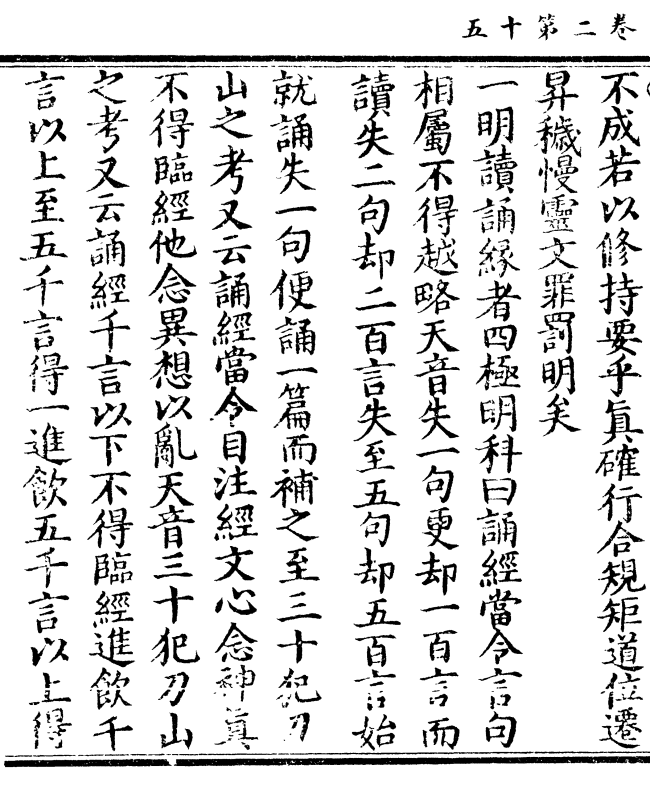 卷二第十五
不成若以修持要乎眞確行合規矩道位遷
昇穢慢靈文罪罰明矣
一明讀誦緣者四極明科曰誦經當令言句
相屬不得越略天音失一句更却一百言而
讀失二句却二百言失至五句却五百言始
就誦失一句便誦一篇而補之至三十犯刀
山之考又云誦經當令目注經文心念神眞
不得臨經他念異想以亂天音三十犯刀山
之考又云誦經千言以下不得臨經進飮千
言以上至五千言得一進飮五千言以上得